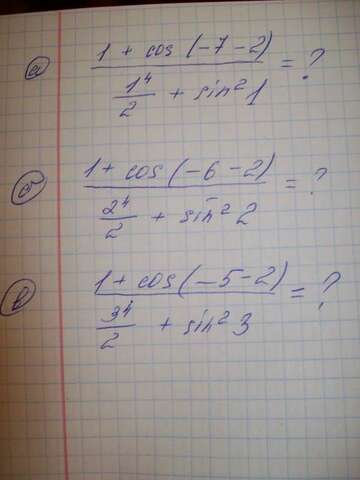 а) (1 + cos (-7-2)) / (1⁴/2 + sin² 1) = ?
б) (1 + cos (-6-2)) / (2⁴/2 + sin² 2) = ?
в) (1 + cos (-5-2)) / (3⁴/2 + sin² 3) = ?